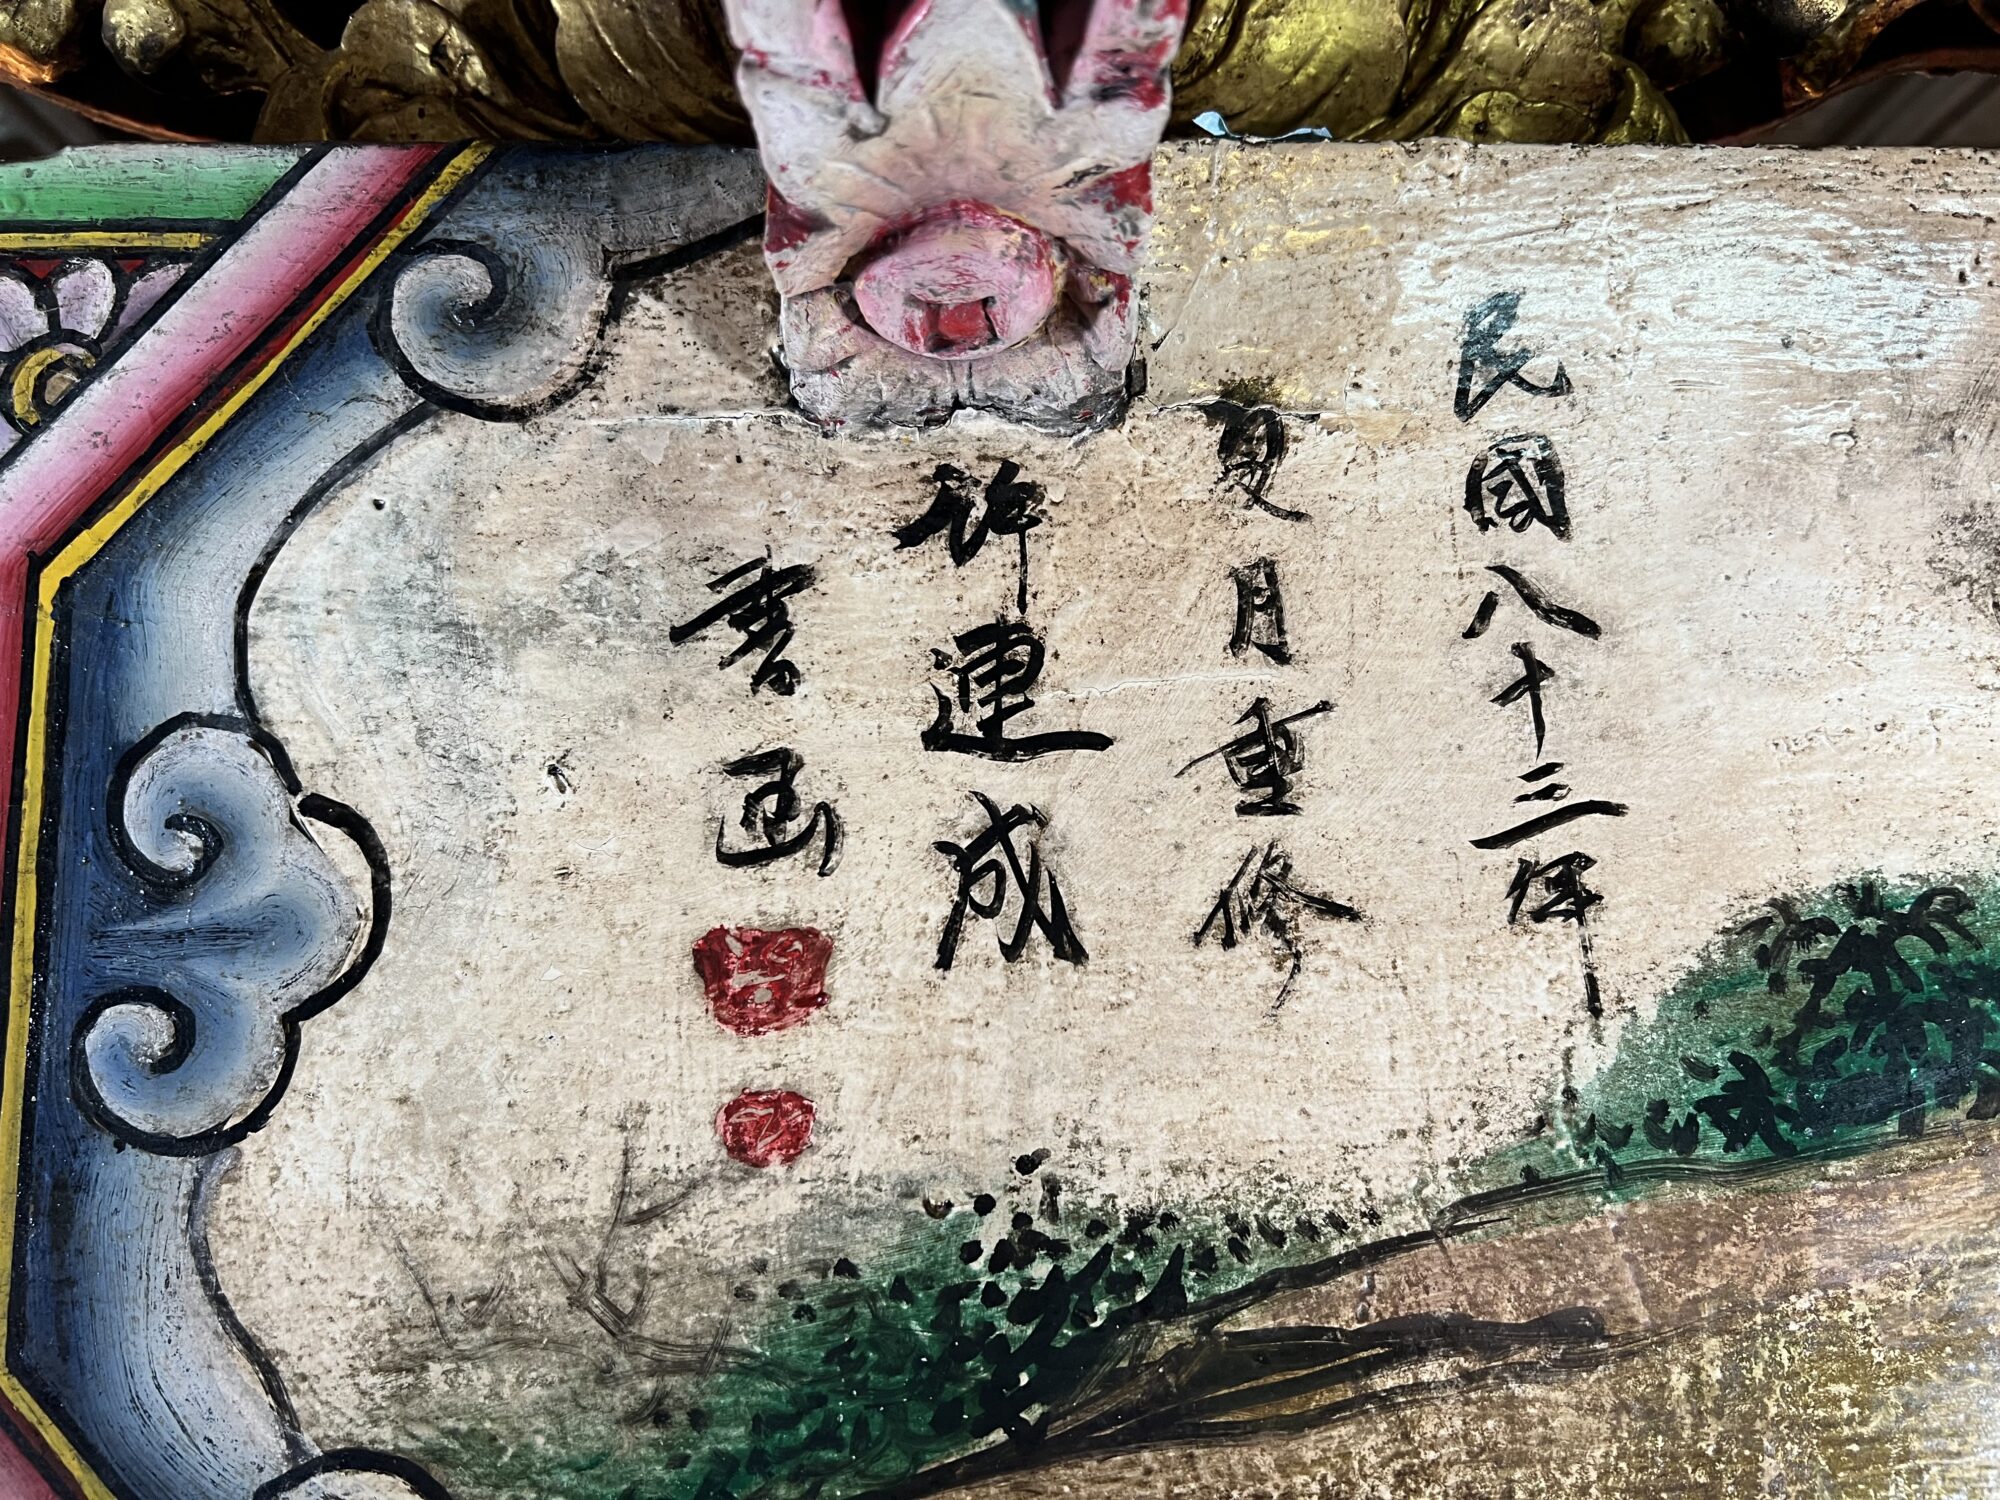 民國八十三年
夏月重修
許連成
書画